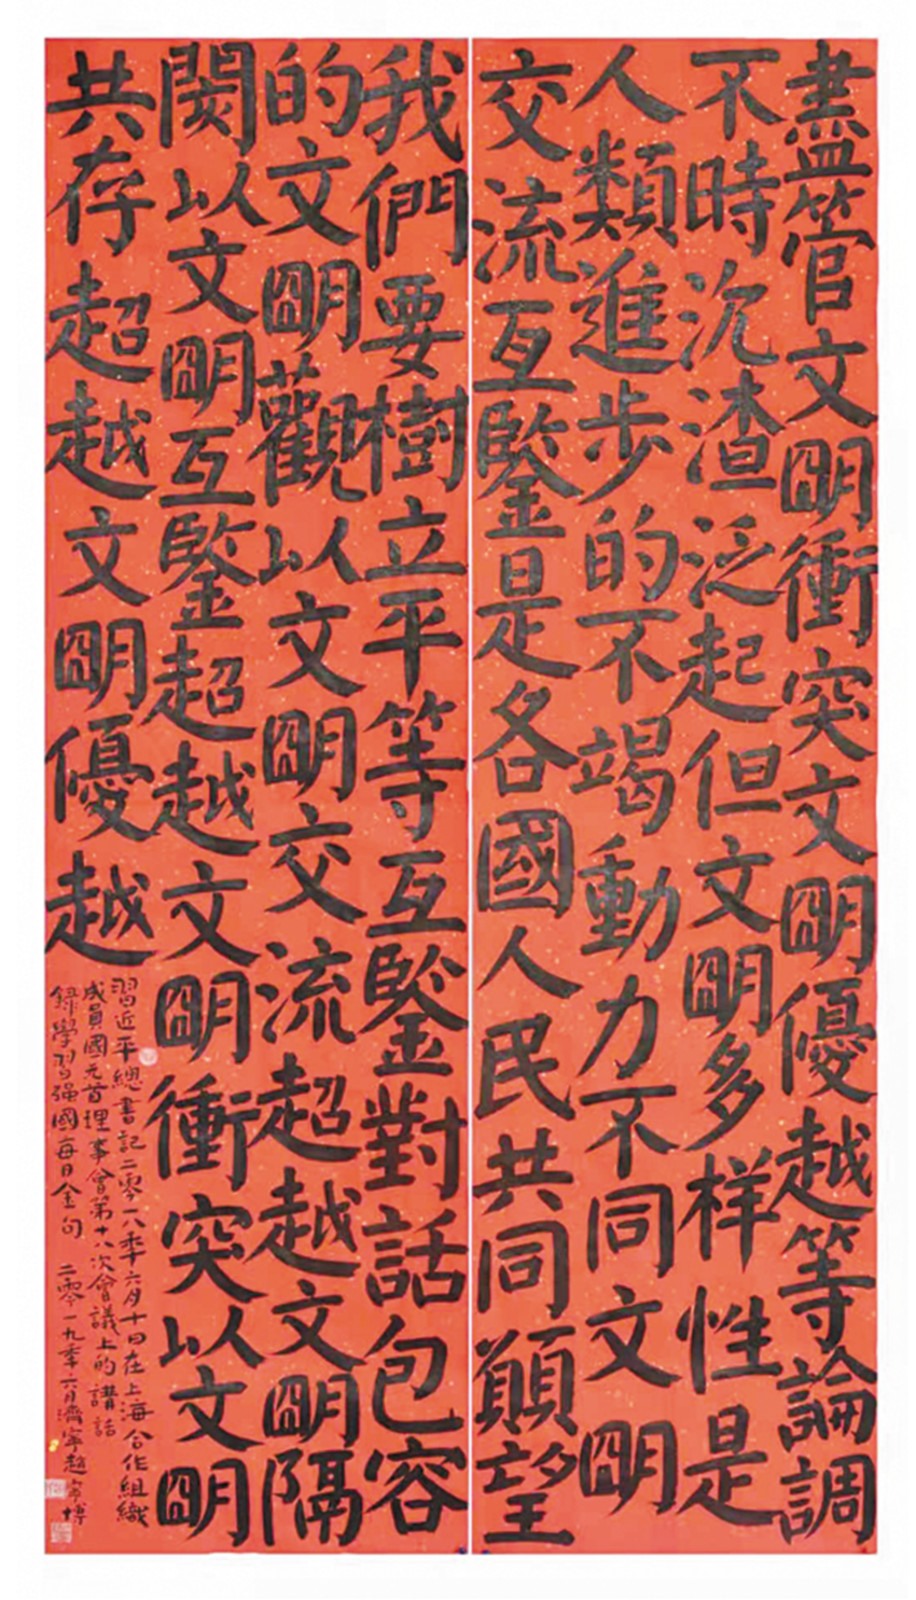 盡管文明衝突文明優越等論調
不時沉渣泛起但文明多样性是
人類進步的不竭動力不同文明
交流互鑒是各國人民共同願望
我們要樹立平等互鑒對話包容
的文明觀以文明交流超越文明隔
閡以文明互鑒超越文明衝突以文明
共存超越文明優越
習近平總書記二零一八年六月十日在上海合作組織
成員國元首理事會第十八次會議上的講話
録學習强國每日金句 二零一九年六月濟寧趙寧博